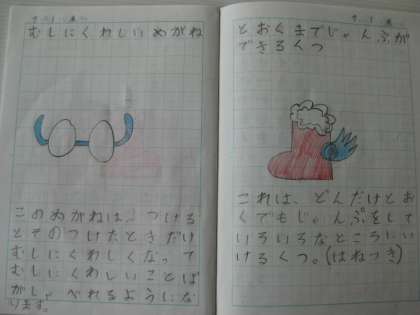 むしにくわしいめがね
このめがねは、つける
とそのつけたときだけ
むしにくわしくなって
むしにくわしいことば
がしゃべれるようにな
ります。
とおくまでじゃんぷが
できるくつ
これは、どんだけとお
くでもじゃんぷをして
いろいろなところにい
けるくつ。(はねつき)